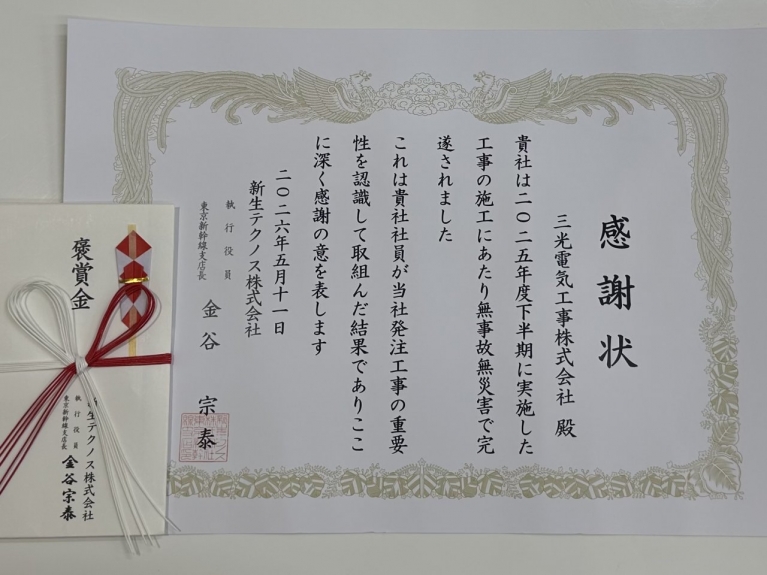 感謝状
三光電気工事株式会社 殿
貴社は二〇二五年度下半期に実施した
工事の施工にあたり無事故無災害で完
遂されました
これは貴社社員が当社発注工事の重要
性を認識して取組んだ結果でありここ
に深く感謝の意を表します
二〇二六年五月十一日
新生テクノス株式会社
執行役員
東京新幹線支店長
金谷 宗泰
褒賞金
新生テクノス株式会社
執行役員
東京新幹線支店長
金谷宗泰